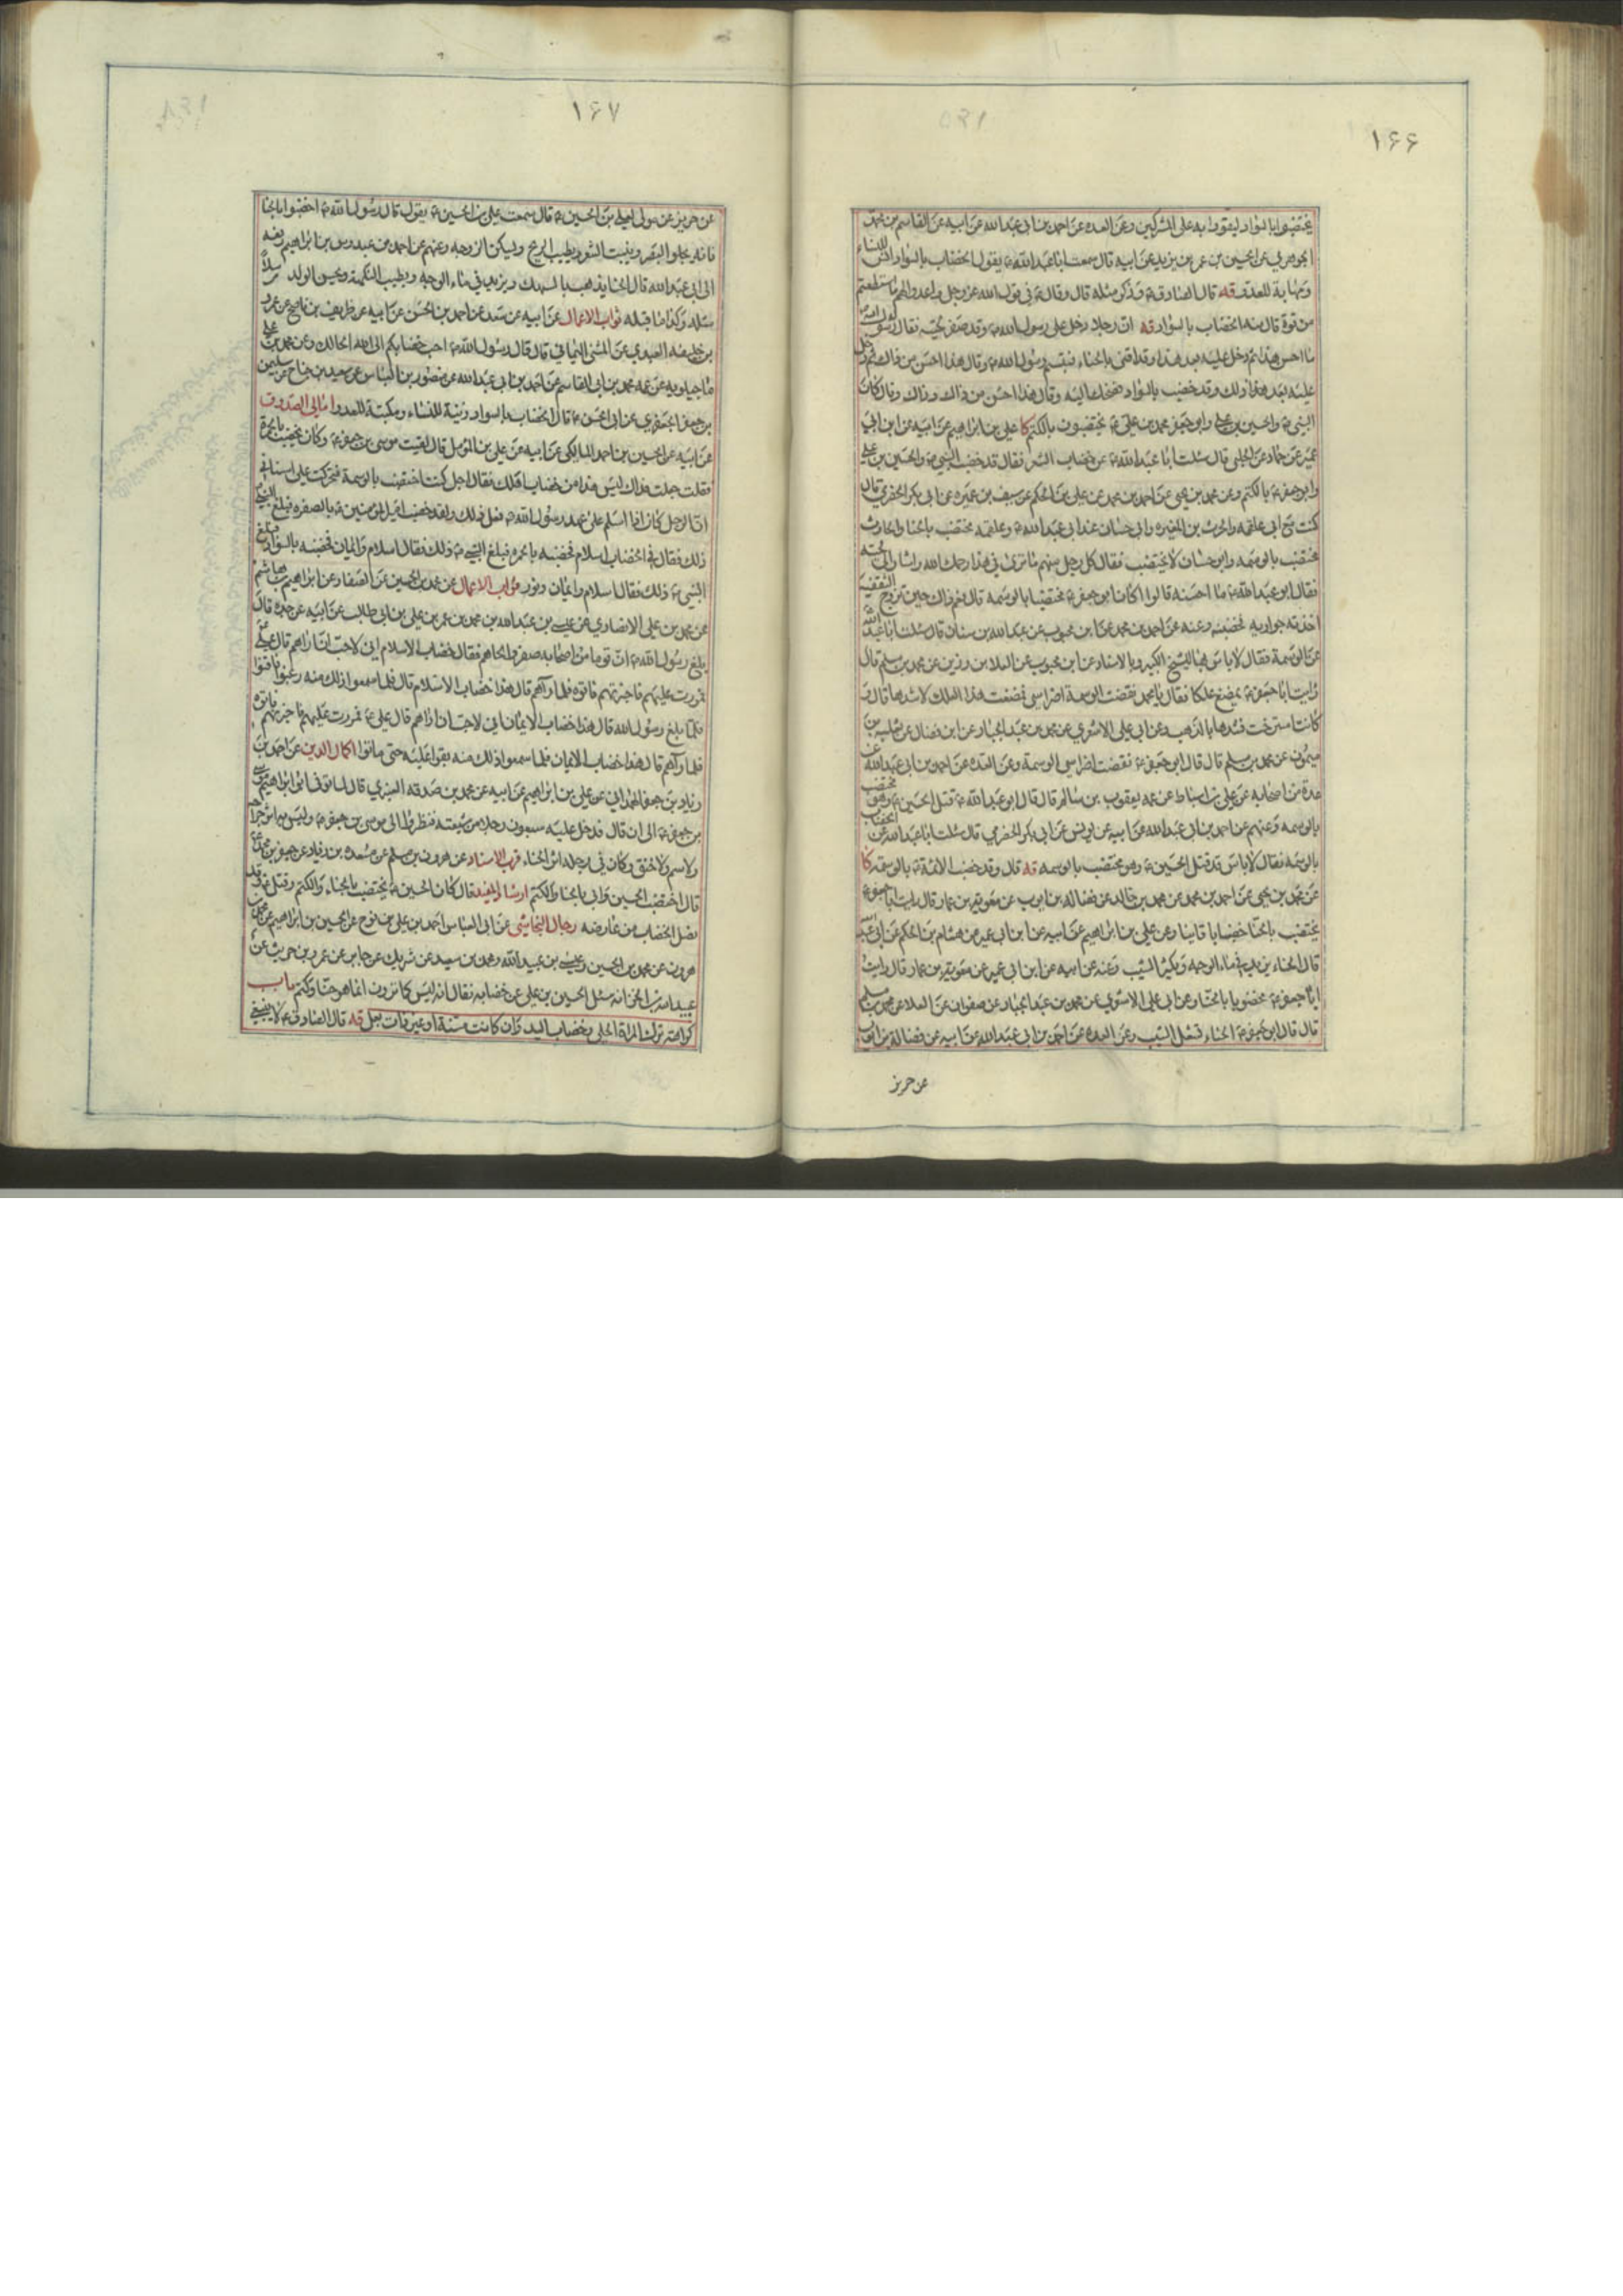 ۱۶۶
يختضبوا بالسواد ليقووا به على المشركين وعن العده عن احمد بن ابى عبد الله عن ابيه عن القاسم بن محمد
الجوهري عن الحسين بن عمر بن يزيد عن ابيه قال سمعت ابا عبد الله ع يقول الخضاب بالسواد انس للنساء
ومهابة للعدو قه قال الصادق ع وذكر مثله قال وقال ع فى قول الله عز وجل واعدوا لهم ما استطعتم
من قوة قال منه الخضاب بالسواد قه ان رجلا دخل على رسول الله ص وقد صفر لحيته فقال له رسول الله
ما احسن هذا ثم دخل عليه بعد هذا وقد اقنى بالحناء فتبسم رسول الله ص وقال هذا احسن من ذاك ثم دخل
عليه بعد ذلك وقد خضب بالسواد فضحك اليه وقال هذا احسن من ذاك وذاك وقال كان
النبى ص والحسين بن على وابو جعفر محمد بن على ع يختضبون بالكتم كا على بن ابراهيم عن ابيه عن ابن ابي
عمير عن حماد عن الحلبى قال سئلت ابا عبد الله ع عن خضاب الشعر فقال قد خضب النبى ص والحسين بن على
وابو جعفر ع بالكتم وعن محمد بن يحيى عن احمد بن محمد عن على بن الحكم عن سيف بن عميره عن ابى بكر الحضرمي قال
كنت مع ابى علقمه والحرث بن المغيره وابى حسان عند ابى عبد الله ع وعلقمه مختضب بالحنا والحارث
مختضب بالوسمه وابو حسان لا يختضب فقال كل رجل منهم ما ترى فى هذا رحمك الله واشار الى لحيته
فقال ابو عبد الله ع ما احسنه قالوا اكان ابو جعفر ع مختضبا بالوسمه قال نعم ذاك حين تزوج الثقفية
اخذته جواريه فخضبنه وعنه عن احمد بن محمد عن ابن محبوب عن عبد الله بن سنان قال سئلت ابا عبد الله
عن الوسمة فقال لا باس بها للشيخ الكبير وبالاسناد عن ابن محبوب عن العلا بن رزين عن محمد بن مسلم قال
رايت ابا جعفر ع يمضغ علكا فقال يا محمد نقضت الوسمة اضراسى فمضغت هذا العلك لاشدها قال و
كانت استرخت فشدها بالذهب وعن ابى على الاشعري عن محمد بن عبد الجبار عن ابن فضال عن ثعلبه بن
ميمون عن محمد بن مسلم قال قال ابو جعفر ع نقضت اضراسى الوسمة وعن العده عن احمد بن ابى عبد الله عن
عدة من اصحابه عن على بن اسباط عن عمه يعقوب بن سالم قال قال ابو عبد الله ع قتل الحسين ع وهو مختضب
بالوسمه وعنهم عن احمد بن ابى عبد الله عن ابيه عن يونس عن ابى بكر الحضرمي قال سئلت ابا عبد الله عن الخضاب
بالوسمه فقال لا باس قد قتل الحسين ع وهو مختضب بالوسمه قه قال وقد خضب الائمة ع بالوسمة كا
عن محمد بن يحيى عن احمد بن محمد عن محمد بن خالد عن فضاله بن ايوب عن معويه بن عمار قال رايت ابا جعفر ع
يختضب بالحنا خضابا قانيا وعن على بن ابراهيم عن ابيه عن ابن ابى عمير عن هشام بن الحكم عن ابى عبد الله
قال الحناء يزيد فى ماء الوجه ويكثر الشيب وعنه عن ابيه عن ابن ابى عمير عن معويه بن عمار قال رايت
ابا جعفر ع مخضوبا بالحنا وعن ابى على الاشعري عن محمد بن عبد الجبار عن صفوان عن العلا عن محمد بن مسلم
قال قال ابو جعفر ع الحناء تشعل الشيب وعن العده عن احمد بن ابى عبد الله عن ابيه عن فضالة بن ايوب
عن حريز
۱۶۷
عن حريز عن مولى لعلى بن الحسين ع قال سمعت على بن الحسين ع يقول قال رسول الله ص اختضبوا بالحنا
فانه يجلو البصر وينبت الشعر ويطيب الريح ويسكن الزوجه وعنهم عن احمد بن عبدوس بن ابراهيم رفعه
الى ابى عبد الله قال الحنا يذهب بالسهك ويزيد في ماء الوجه ويطيب النكهة ويحسن الولد
مثله وكذا ما قبله ثواب الاعمال عن ابيه عن سعد عن احمد بن الحسن عن ابيه عن ظريف بن ناصح عن عمرو
بن خليفه العبدي عن المثنى اليمانى قال قال رسول الله ص احب خضابكم الى الله الحالك وعن محمد بن على
ماجيلويه عن عمه محمد بن ابى القاسم عن احمد بن ابى عبد الله عن منصور بن العباس عن سعيد بن جناح عن سليمن
بن جعفر الجعفري عن ابى الحسن ع قال الخضاب بالسواد زينة للنساء ومكبتة للعدو امالى الصدوق
عن ابيه عن الحسين بن احمد المالكى عن ابيه عن على بن المؤمل قال لقيت موسى بن جعفر ع وكان يختضب بالحمرة
فقلت جعلت فداك ليس هذا من خضاب اهلك فقال اجل كنت اختضب بالوسمة فتحركت على اسنانى
ان الرجل كان اذا اسلم على عهد رسول الله ص فعل ذلك ولقد خضب امير المؤمنين ع بالصفره فبلغ النبى
ذلك فقال فى الخضاب اسلام فخضبه بالحمره فبلغ النبى ص ذلك فقال اسلام وايمان فخضبه بالسواد فبلغ
النبى ص ذلك فقال اسلام وايمان ونور ثواب الاعمال عن محمد بن الحسين عن الصفار عن ابراهيم بن هاشم
عن محمد بن على الانصاري عن عيسى بن عبد الله بن محمد بن عمر بن على بن ابى طالب عن ابيه عن جده قال
بلغ رسول الله ص ان قوما من اصحابه صفروا لحاهم فقال خضاب الاسلام انى لاحب ان اراهم قال على ع
فمررت عليهم فاخبرتهم فاتوه فلما رآهم قال هذا خضاب الاسلام قال فلما سمعوا ذلك منه رغبوا فاقنوا
فلما بلغ رسول الله قال هذا خضاب الايمان انى لاحب ان اراهم قال على ع فمررت عليهم فاخبرتهم فاتوه
فلما رآهم قال هذا خضاب الايمان فلما سمعوا ذلك منه بقوا عليه حتى ماتوا اكمال الدين عن احمد بن
زياد بن جعفر الهمدانى عن على بن ابراهيم عن ابيه عن محمد بن صدقه العنبري قال لما توفى ابو ابراهيم موسى
بن جعفر ع الى ان قال فدخل عليه سبعون رجلا من شيعته فنظروا الى موسى بن جعفر ع وليس به اثر جراحة
ولا سم ولا خنق وكان فى رجله اثر الحناء قرب الاسناد عن هرون بن مسلم عن مسعده بن زياد عن جعفر بن محمد ع
قال اختضب الحسين وابى بالحنا والكتم ارشاد المفيد قال كان الحسين ع يختضب بالحناء والكتم وقتل ع وقد
نصل الخضاب من عارضه رجال النجاشى عن ابى العباس احمد بن على بن نوح عن الحسين بن ابراهيم عن محمد بن
هرون عن محمد بن الحسين وعيسى بن عبد الله ومحمد بن سعيد عن شريك عن جابر عن عمرو بن حريث عن
عبيد الله بن الحر انه سئل الحسين بن على عن خضابه فقال انه ليس كما ترون انما هو حنا وكتم باب
كراهة ترك المراة الحلى وخضاب اليد وان كانت مسنة او غير ذات بعل قه قال الصادق ع لا ينبغى